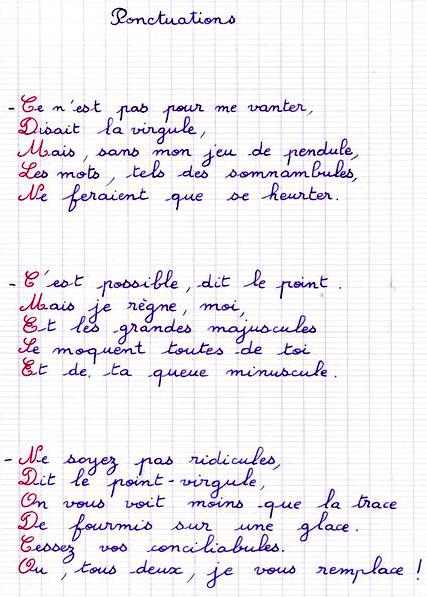 Ponctuations
- Ce n'est pas pour me vanter,
Disait la virgule,
Mais, sans mon jeu de pendule,
Les mots, tels des somnambules,
Ne feraient que se heurter.
- C'est possible, dit le point.
Mais je règne, moi,
Et les grandes majuscules
Se moquent toutes de toi
Et de ta queue minuscule.
- Ne soyez pas ridicules,
Dit le point-virgule,
On vous voit moins que la trace
De fourmis sur une glace.
Cessez vos conciliabules.
Ou, tous deux, je vous remplace !